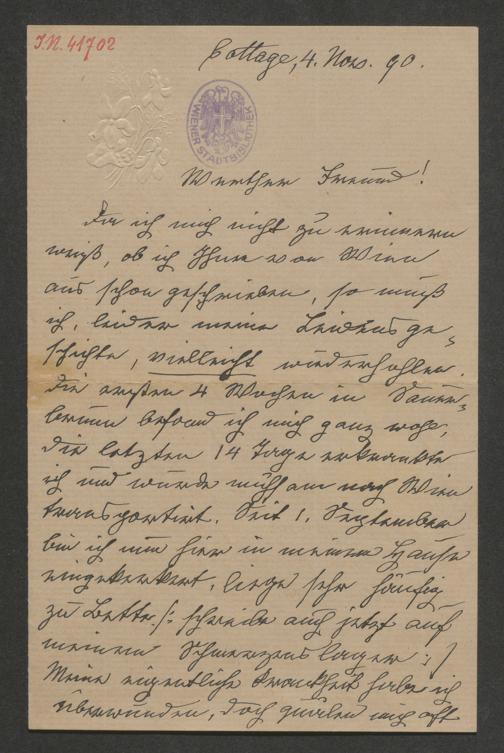 I.N. 41702
Cottage, 4. Nov. 90.
WIENER STADTBIBLIOTHEK
Werther Freund!
Da ich mich nicht zu erinnern
weiß, ob ich Ihnen von Wien
aus schon geschrieben, so muß
ich, leider meine Leidensge-
schichte, vielleicht wiederhohlen.
Die ersten 4 Wochen in Sauer-
brunn befand ich mich ganz wohl,
die letzten 14 Tage erkrankte
ich und wurde mühsam nach Wien
transportirt. Seit 1. September
bin ich nun hier in meinem Hause
eingekerkert, liege sehr häufig
zu Bette /: schreibe auch jetzt auf
meinem Schmerzenslager :/
Meine eigentliche Krankheit habe ich
überwunden, doch quälen mich oft